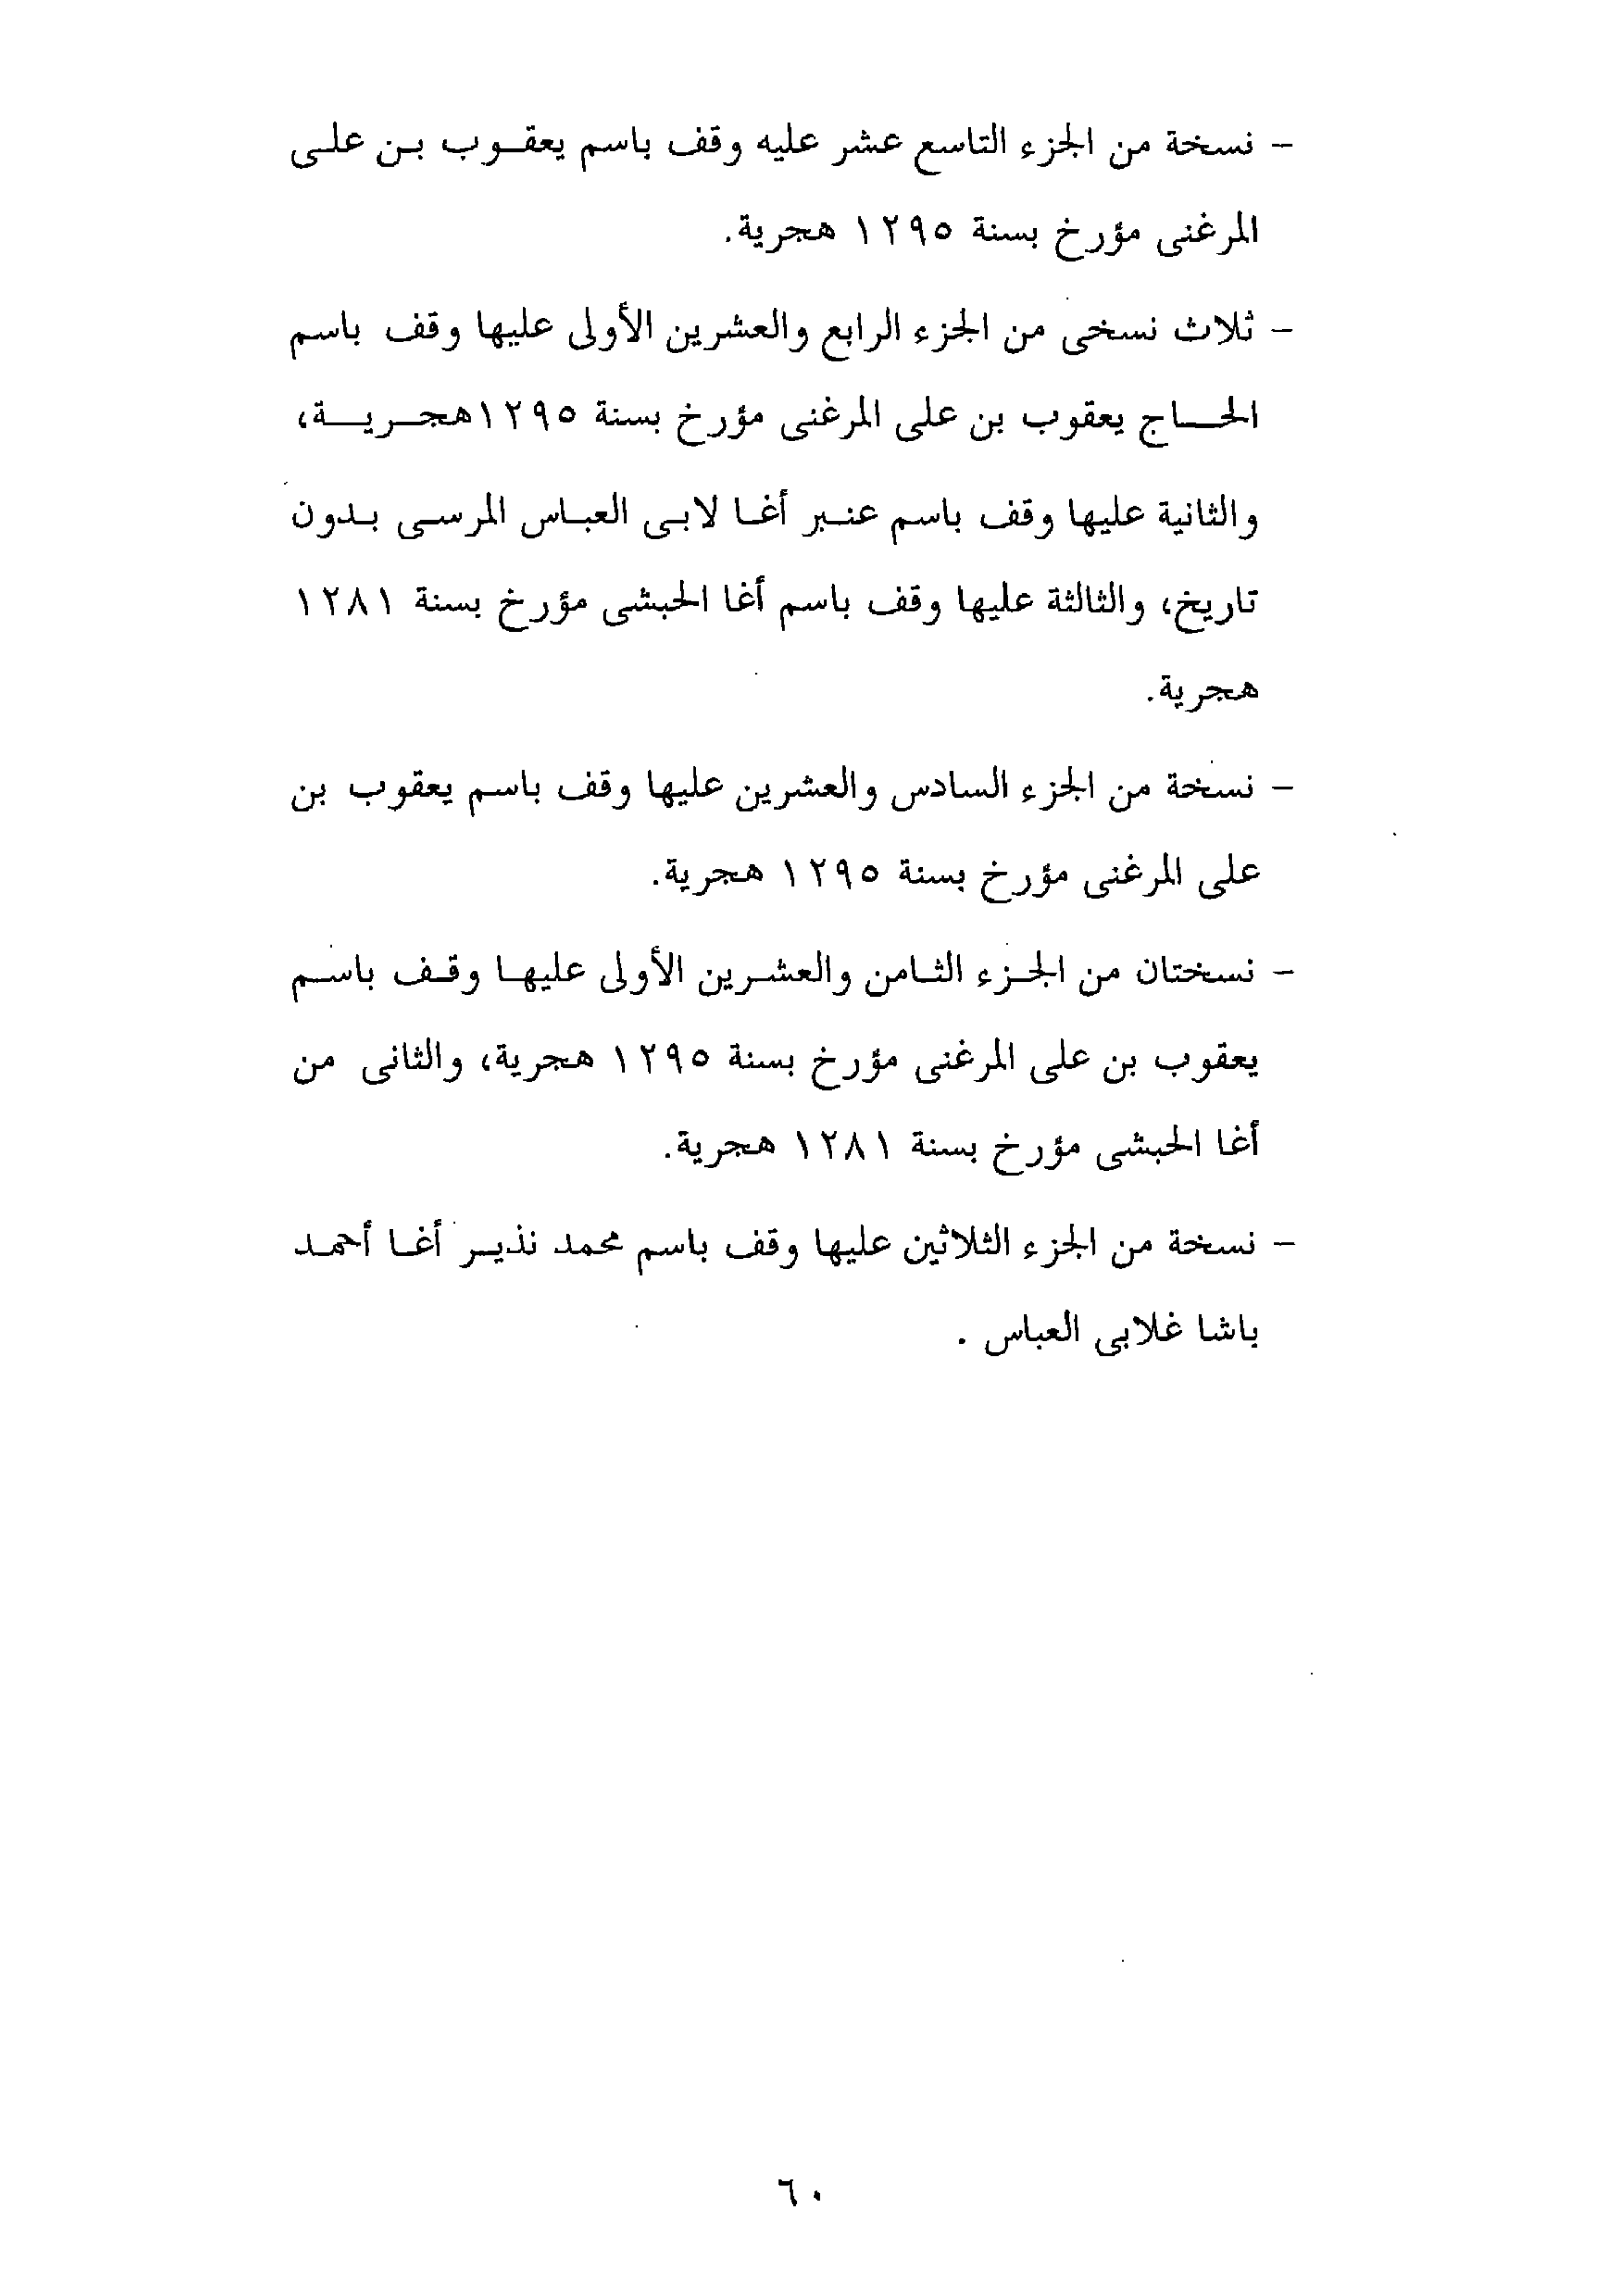 - نسخة من الجزء التاسع عشر عليه وقف باسم يعقوب بن على
المرغنى مؤرخ بسنة ١٢٩٥ هجرية.
- ثلاث نسخى من الجزء الرابع والعشرين الأولى عليها وقف باسم
الحاج يعقوب بن على المرغنى مؤرخ بسنة ١٢٩٥هجرية،
والثانية عليها وقف باسم عنبر أغا لابى العباس المرسى بدون
تاريخ، والثالثة عليها وقف باسم أغا الحبشى مؤرخ بسنة ١٢٨١
هجرية.
- نسخة من الجزء السادس والعشرين عليها وقف باسم يعقوب بن
على المرغنى مؤرخ بسنة ١٢٩٥ هجرية.
- نسختان من الجزء الثامن والعشرين الأولى عليها وقف باسم
يعقوب بن على المرغنى مؤرخ بسنة ١٢٩٥ هجرية، والثانى من
أغا الحبشى مؤرخ بسنة ١٢٨١ هجرية.
- نسخة من الجزء الثلاثين عليها وقف باسم محمد نذير أغا أحمد
باشا غلابى العباس .
٦٠